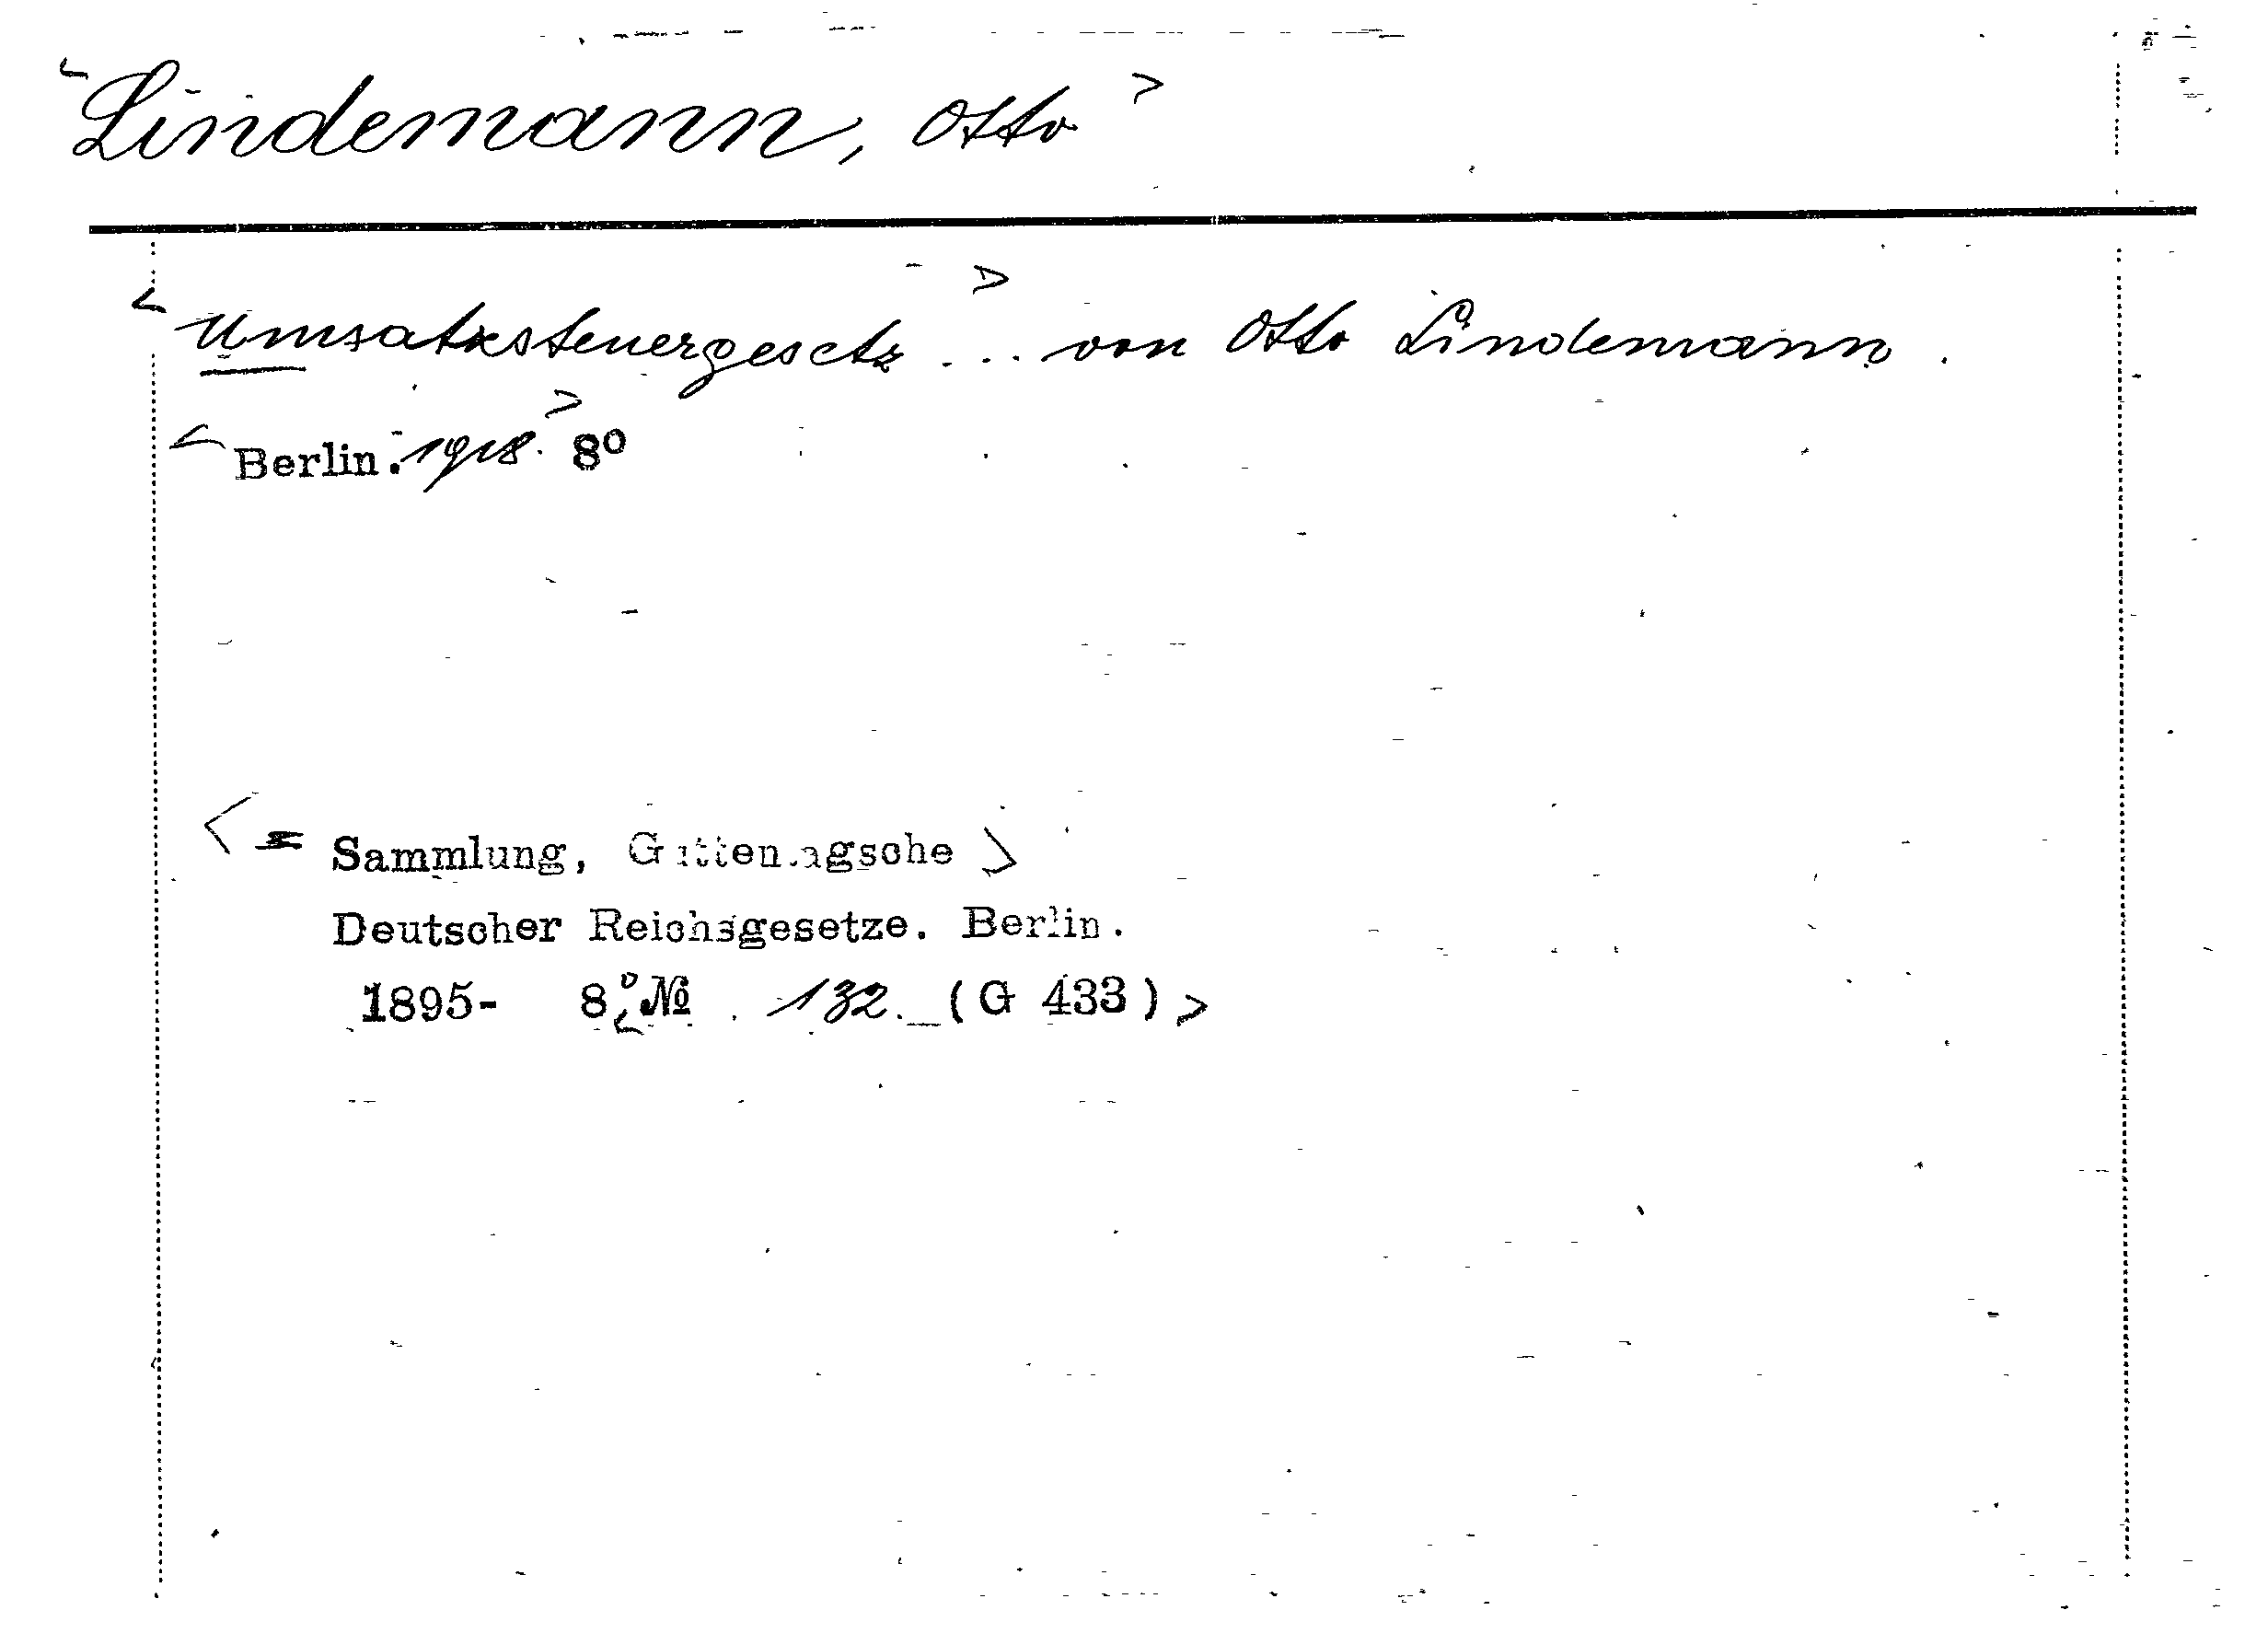 <Lindemann, Otto>
<Umsatzsteuergesetz> ... von Otto Lindemann.
<Berlin. 1918.> 8°
<= Sammlung, Guttentagsche>
Deutscher Reichsgesetze. Berlin.
1895- 8°, <№ 132. (G 433)>